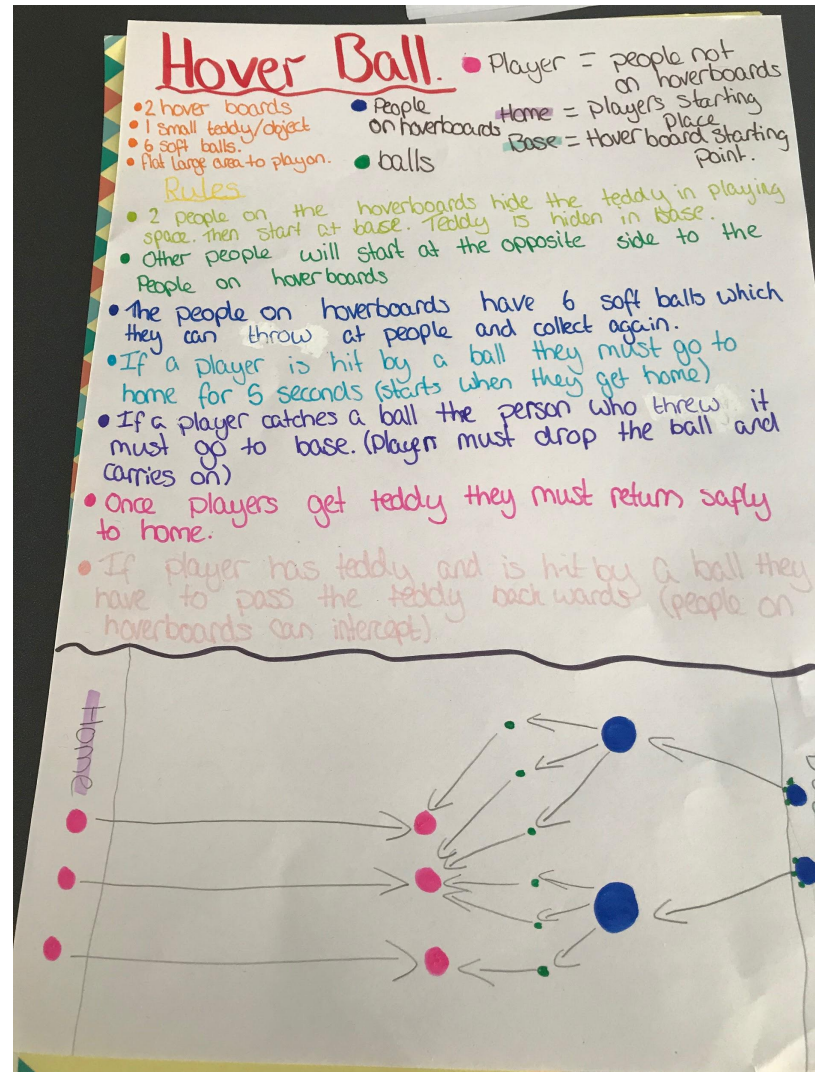 Hover Ball.
• Player = people not
on hoverboards
• 2 hover boards
• 1 small teddy/object
• 6 soft balls.
• flat large area to play on.
• People
on hoverboards
• balls
Home = players starting
place
Base = Hover board starting
point.
Rules
• 2 people on the hoverboards hide the teddy in playing
space. Then start at base. Teddy is hiden in base.
• Other people will start at the opposite side to the
People on hoverboards
• The people on hoverboards have 6 soft balls which
they can throw at people and collect again.
• If a player is hit by a ball they must go to
home for 5 seconds (starts when they get home)
• If a player catches a ball the person who threw it
must go to base. (Players must drop the ball and
carries on)
• Once players get teddy they must return safly
to home.
• If player has teddy and is hit by a ball they
have to pass the teddy back wards (people on
hoverboards can intercept).
Home